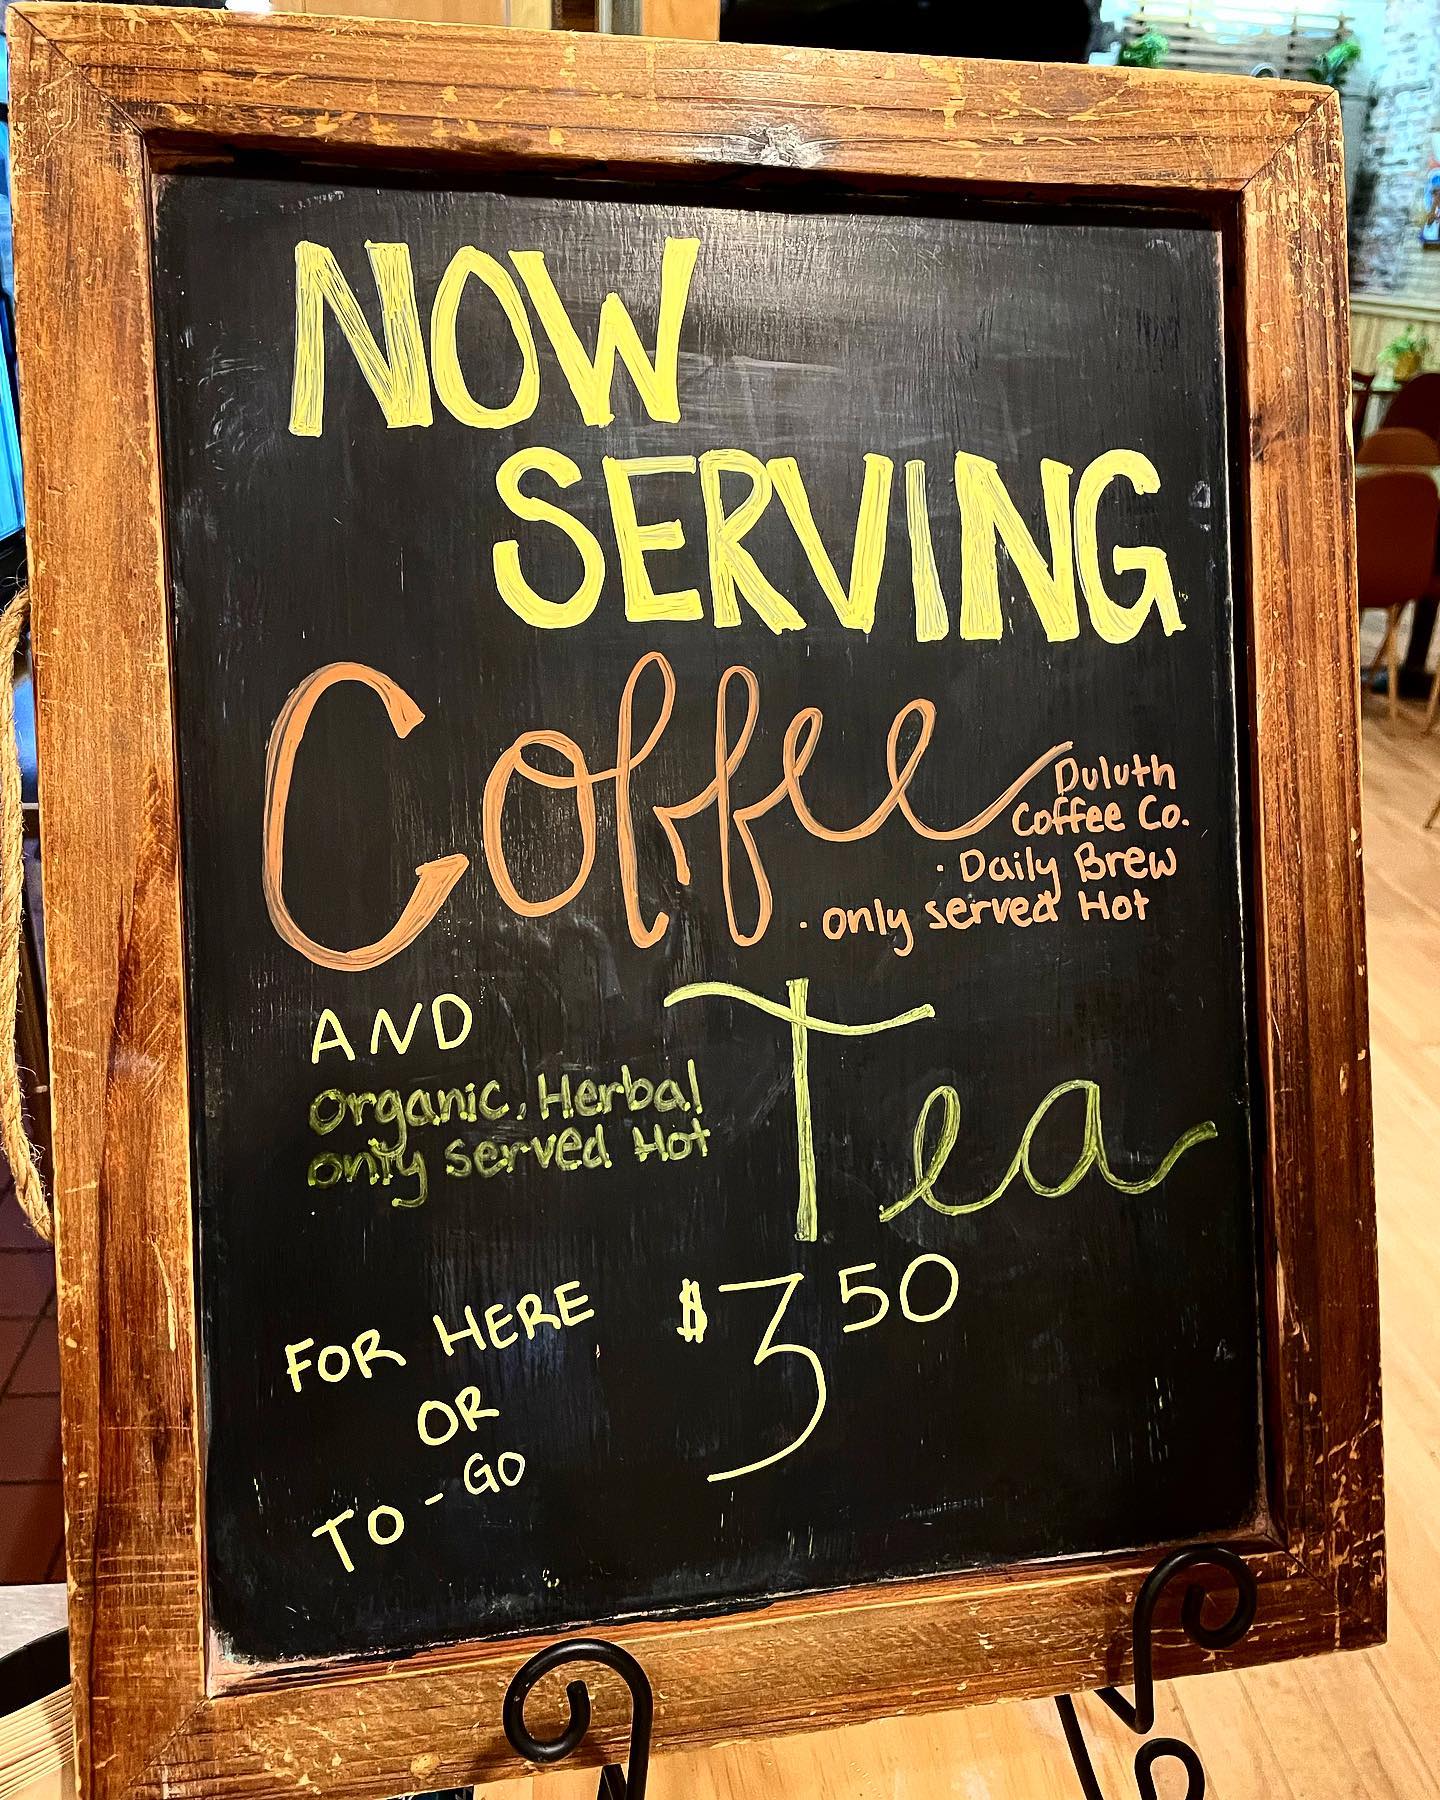 NOW
SERVING
Coffee
Duluth
Coffee Co.
· Daily Brew
· only served Hot
AND
Tea
Organic, Herbal
only served Hot
FOR HERE
OR
TO-GO
$3.50